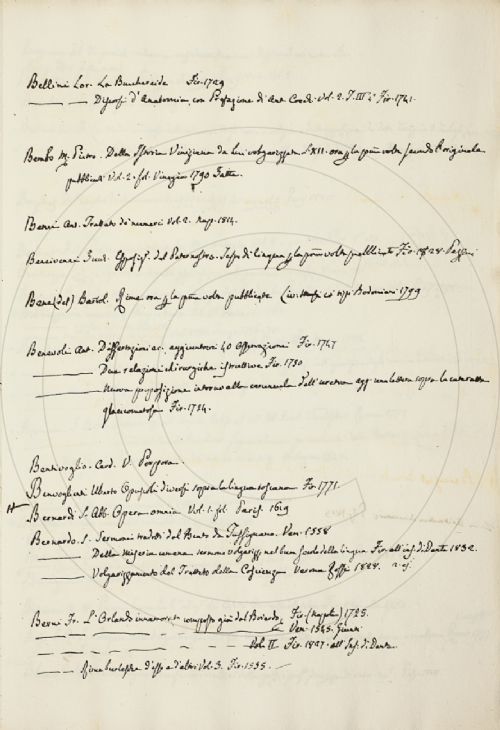 Bellini Lor. La Bucchereide Fir. 1729
— — Discorsi d'Anatomia, con Prefazione di Ant. Cocchi. Vol. 2. Fir. 1741.
Bembo M. Pietro. Della Istoria Viniziana da lui volgarizzata L. XII. ora p. la prima volta secondo l'originale
pubblicati Vol. 2. fol. Vinegia 1790 Zatta.
Ant. Trattato di Vol. 2. Nap. 1814.
Bencivenni Zucc. Esposiz. del Paternostro. Testo di lingua p. la prima volta pubblicato Fir. 1828.
Bene (del) Bartol. Rime ora p. la prima volta pubblicate Livorno co' tipi Bodoniani 1799
Benevoli Ant. Dissertazioni ec. aggiuntovi 40 osservazioni Fir. 1747
— Due relazioni chirurgiche istruttive Fir. 1730
— Nuova proposizione intorno alla caruncula dell'uretra agg. una lettera sopra la cateratta
glaucomatosa Fir. 1724.
Bentivoglio. Card. V. Porpora.
Benvoglienti Uberto Opuscoli diversi sopra la lingua toscana Fir. 1771.
Bernardi S. Abb. Opera omnia Vol. 1. fol. Paris. 1619
Bernardo. S. Sermoni tradotti dal Ven. 1558
— Della miseria umana sermone volgarizz. nel buon secolo della lingua Fir. all'ins. di Dante 1832.
— Volgarizzamento del Trattato della Coscienza Verona 1828.
Berni Fr. L'Orlando innamorato composto già dal Boiardo, Fir. (Napoli) 1725.
— — — — Ven. 1545. Giunti
— — — — Vol. II Fir. 1827. all'Ins. di Dante.
— Rime burlesche d'esso e d'altri Vol. 3. Fir. 1555.